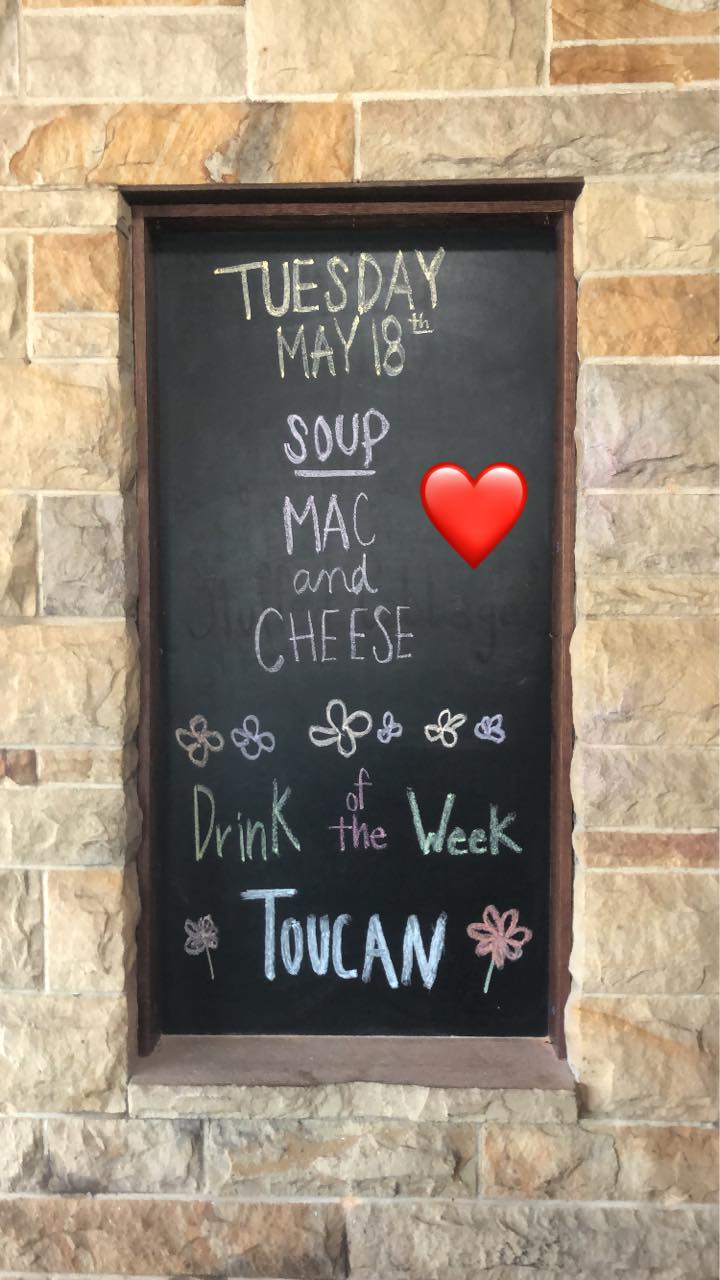 TUESDAY
MAY 18th
SOUP
MAC
and
CHEESE
Drink of the Week
TOUCAN